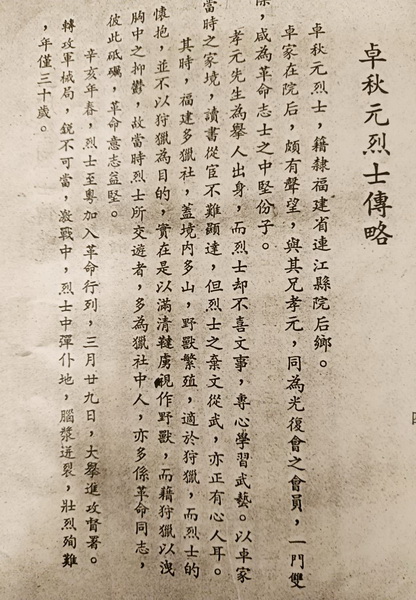 卓秋元烈士傳略
卓秋元烈士,籍隸福建省連江縣院后鄉。
卓家在院后,頗有聲望,與其兄孝元,同為光復會之會員,一門雙
傑,咸為革命志士之中堅份子。
孝元先生為舉人出身,而烈士却不喜文事,專心學習武藝。以卓家
當時之家境,讀書從宦不難顯達,但烈士之棄文從武,亦正有心人耳。
其時,福建多獵社,蓋境內多山,野獸繁殖,適於狩獵,而烈士的
懷抱,並不以狩獵為目的,實在是以滿清韃虜視作野獸,而藉狩獵以洩
胸中之抑鬱,故當時烈士所交遊者,多為獵社中人,亦多係革命同志,
彼此砥礪,革命意志益堅。
辛亥年春,烈士至粵加入革命行列,三月廿九日,大舉進攻督署。
轉攻軍械局,銳不可當,激戰中,烈士中彈仆地,腦漿迸裂,壯烈殉難
,年僅三十歲。